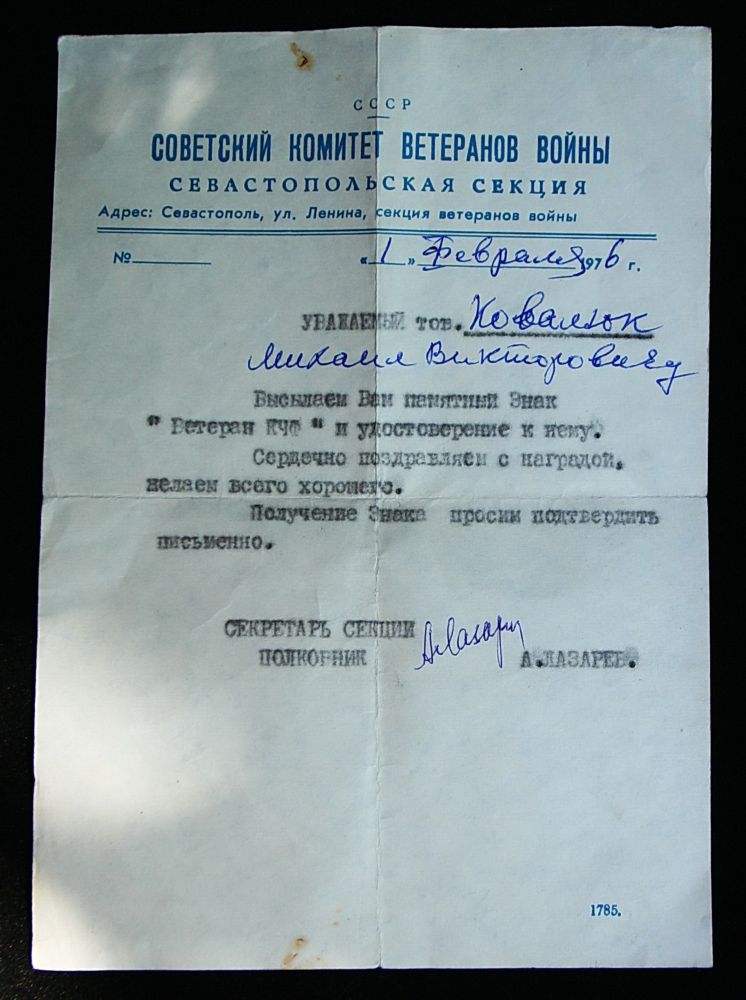 СССР
СОВЕТСКИЙ КОМИТЕТ ВЕТЕРАНОВ ВОЙНЫ
СЕВАСТОПОЛЬСКАЯ СЕКЦИЯ
Адрес: Севастополь, ул. Ленина, секция ветеранов войны
№ «1» Февраля 1976 г.
УВАЖАЕМЫЙ тов. Ковалюк
Михаил Викторович
Высылаем Вам памятный Знак
" Ветеран КЧФ " и удостоверение к нему.
Сердечно поздравляем с наградой,
желаем всего хорошего.
Получение Знака просим подтвердить
письменно.
СЕКРЕТАРЬ СЕКЦИИ
ПОЛКОВНИК А.ЛАЗАРЕВ.
1785.